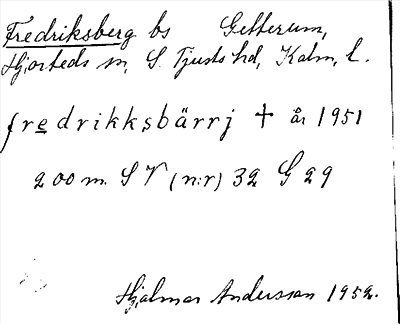 Fredriksberg bs Getterum,
Hjorteds sn, S. Tjusts hd, Kalm. l.
fredrikksbärrj + år 1951
200 m. SV (n:r) 32 G 29
Hjalmar Andersson 1952.